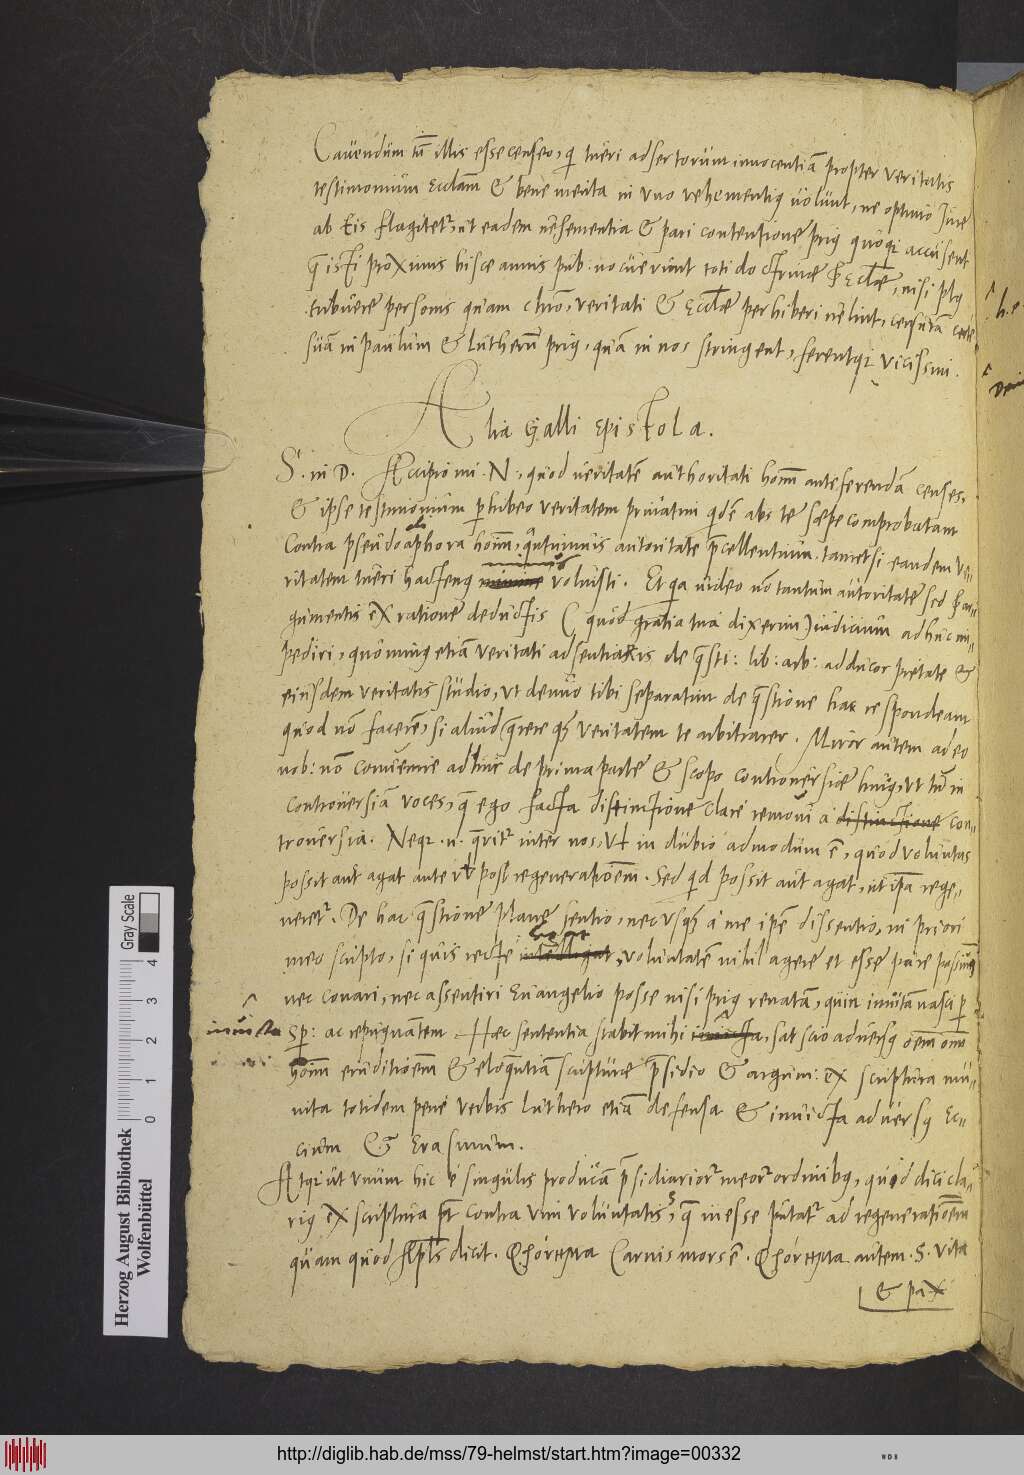 Cavendum tn̄ illis esse censeo, qi tueri adsertorum innocentiā propter veritatis
testimonium Ecclām & bene merita in vno vehementiq́ volunt, ne optimo Jure
ab Eis flagitetr, ut eadem vehementia & pari contentione priq́ quoq accusent
q̄ isti proximis hisce annis pub: nocuerunt toti doctrinæ & Ecclæ, nisi plq́
tribuere personis quam chrō, veritati & Ecclæ perhiberi velint, censurā certe
suā in Paulum & Lutherū priq́, quā in nos stringent, ferentq vicissim.
Alia Galli Epistola.
S. in D. Accipio mi N, quod veritatē authoritati homī anteferendā censes,
& ipse testimonium perhibeo veritatem privatim qdē abs te sæpe comprobatam
contra pseudoaphora homī, quātumvis autoritate præcellentium, tametsi eandem ve-
ritatem tueri hactenq́ voluisti. Et qa video nō tantum autoritate sed & ar-
gumentis ex ratione deductis (quod gratia tua dixerim) iudicium adhuc im-
pediri, quominq́ etiā veritati adsentiaris de q̄sti: lib: arb: adducor pietate &
eiusdem veritatis studio, vt denuo tibi separatim de q̄stione hac respondeam
quod nō facerē, si aliud quærere q̄ veritatem te arbitrarer. Miror autem adeo
nob: nō convenire adhuc de prima parte & scopo controversiæ huiq́, vt tn̄ in
controversiā voces, q̄ ego facta distinctione clare removi a distinctione con-
troversia. Neq. n. q̄ritr inter nos, Vt in dubio admodum ē, quod voluntas
possit aut agat ante vł post regenerationem. Sed qd possit aut agat, ut ipā rege-
neretr. De hac q̄stione plane sentio, nec usq̄ a me ipē dissentio, in priori
meo scripto, si quis recte intelligat legat, voluntatē nihil agere et esse pure passivā
nec conari, nec assentiri Evangelio posse nisi priq́ renatam, quin invitā nasci p
invita Sp: ac repugnātem Hæc sententia stabit mihi invicta, sat scio adversq́ oēm oīm
homī eruditionem & eloquentiā scripturæ præsidio & argum: ex scriptura mu-
nita totidem pene verbis Luthero etiā defensa & invicta adversq́ Ec-
cium & Erasmum.
Atq ut unum hic e singulis producā præsidiarior meor ordinibq́, quid dici cla-
riq́ ex scriptura pt contra vim voluntatis, q̄ inesse putatr ad regenerationem
quam quod Apls dicit. Φρόνημα Carnis mors ē. Φρόνημα autem S. vita
& pax
Gray Scale
0 1 2 3 4
Herzog August Bibliothek
Wolfenbüttel
http://diglib.hab.de/mss/79-helmst/start.htm?image=00332